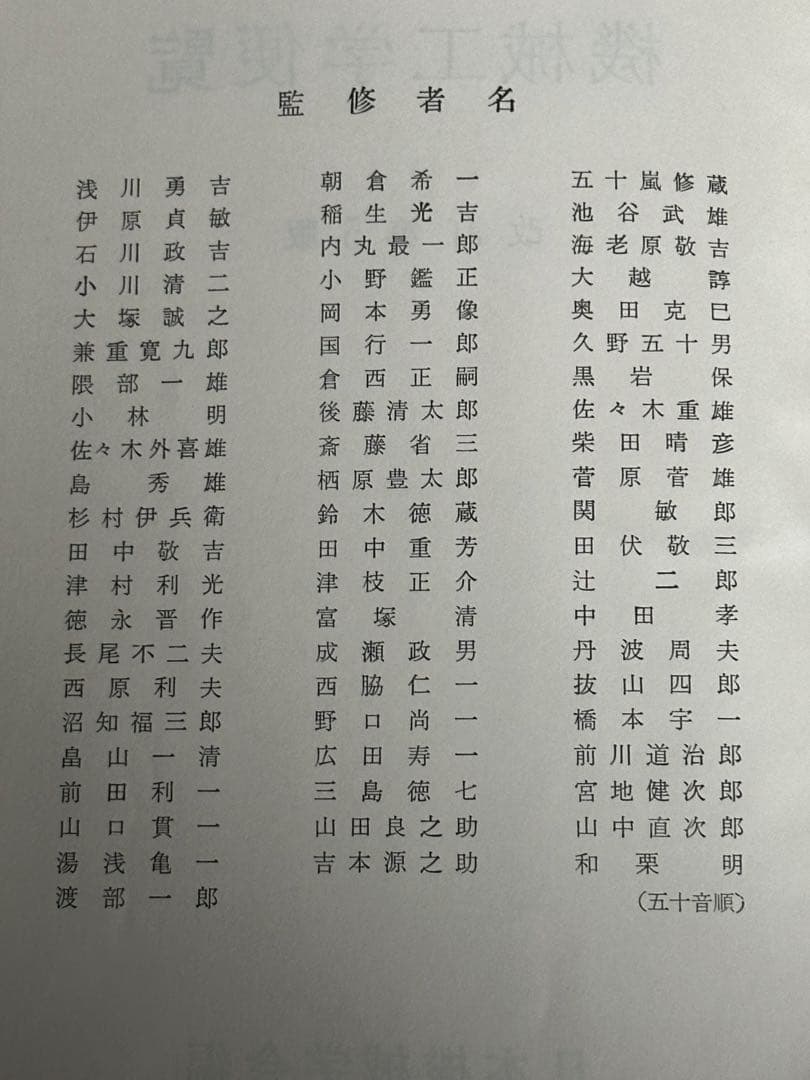 監修者名
浅川勇吉 朝倉希一 五十嵐修蔵
伊原貞敏 稲生光吉 池谷武雄
石川政吉 内丸最一郎 海老原敬吉
小川清二 小野鑑正 大越諄
大塚誠之 岡本勇像 奥田克巳
兼重寛九郎 国行一郎 久野五十男
隈部一雄 倉西正嗣 黒岩保
小林明 後藤清太郎 佐々木重雄
佐々木外喜雄 斎藤省三 柴田晴彦
島秀雄 栖原豊太郎 菅原菅雄
杉村伊兵衛 鈴木徳蔵 関敏郎
田中敬吉 田中重芳 田伏敬三
津村利光 津枝正介 辻二郎
徳永晋作 富塚清 中田孝
長尾不二夫 成瀬政男 丹波周夫
西原利夫 西脇仁一 抜山四郎
沼知福三郎 野口尚一 橋本宇一
畠山一清 広田寿一 前川道治郎
前田利一 三島徳七 宮地健次郎
山口貫一 山田良之助 山中直次郎
湯浅亀一 吉本源之助 和栗明
渡部一郎
(五十音順)
機械工学便覧
改 版
日本機械学会